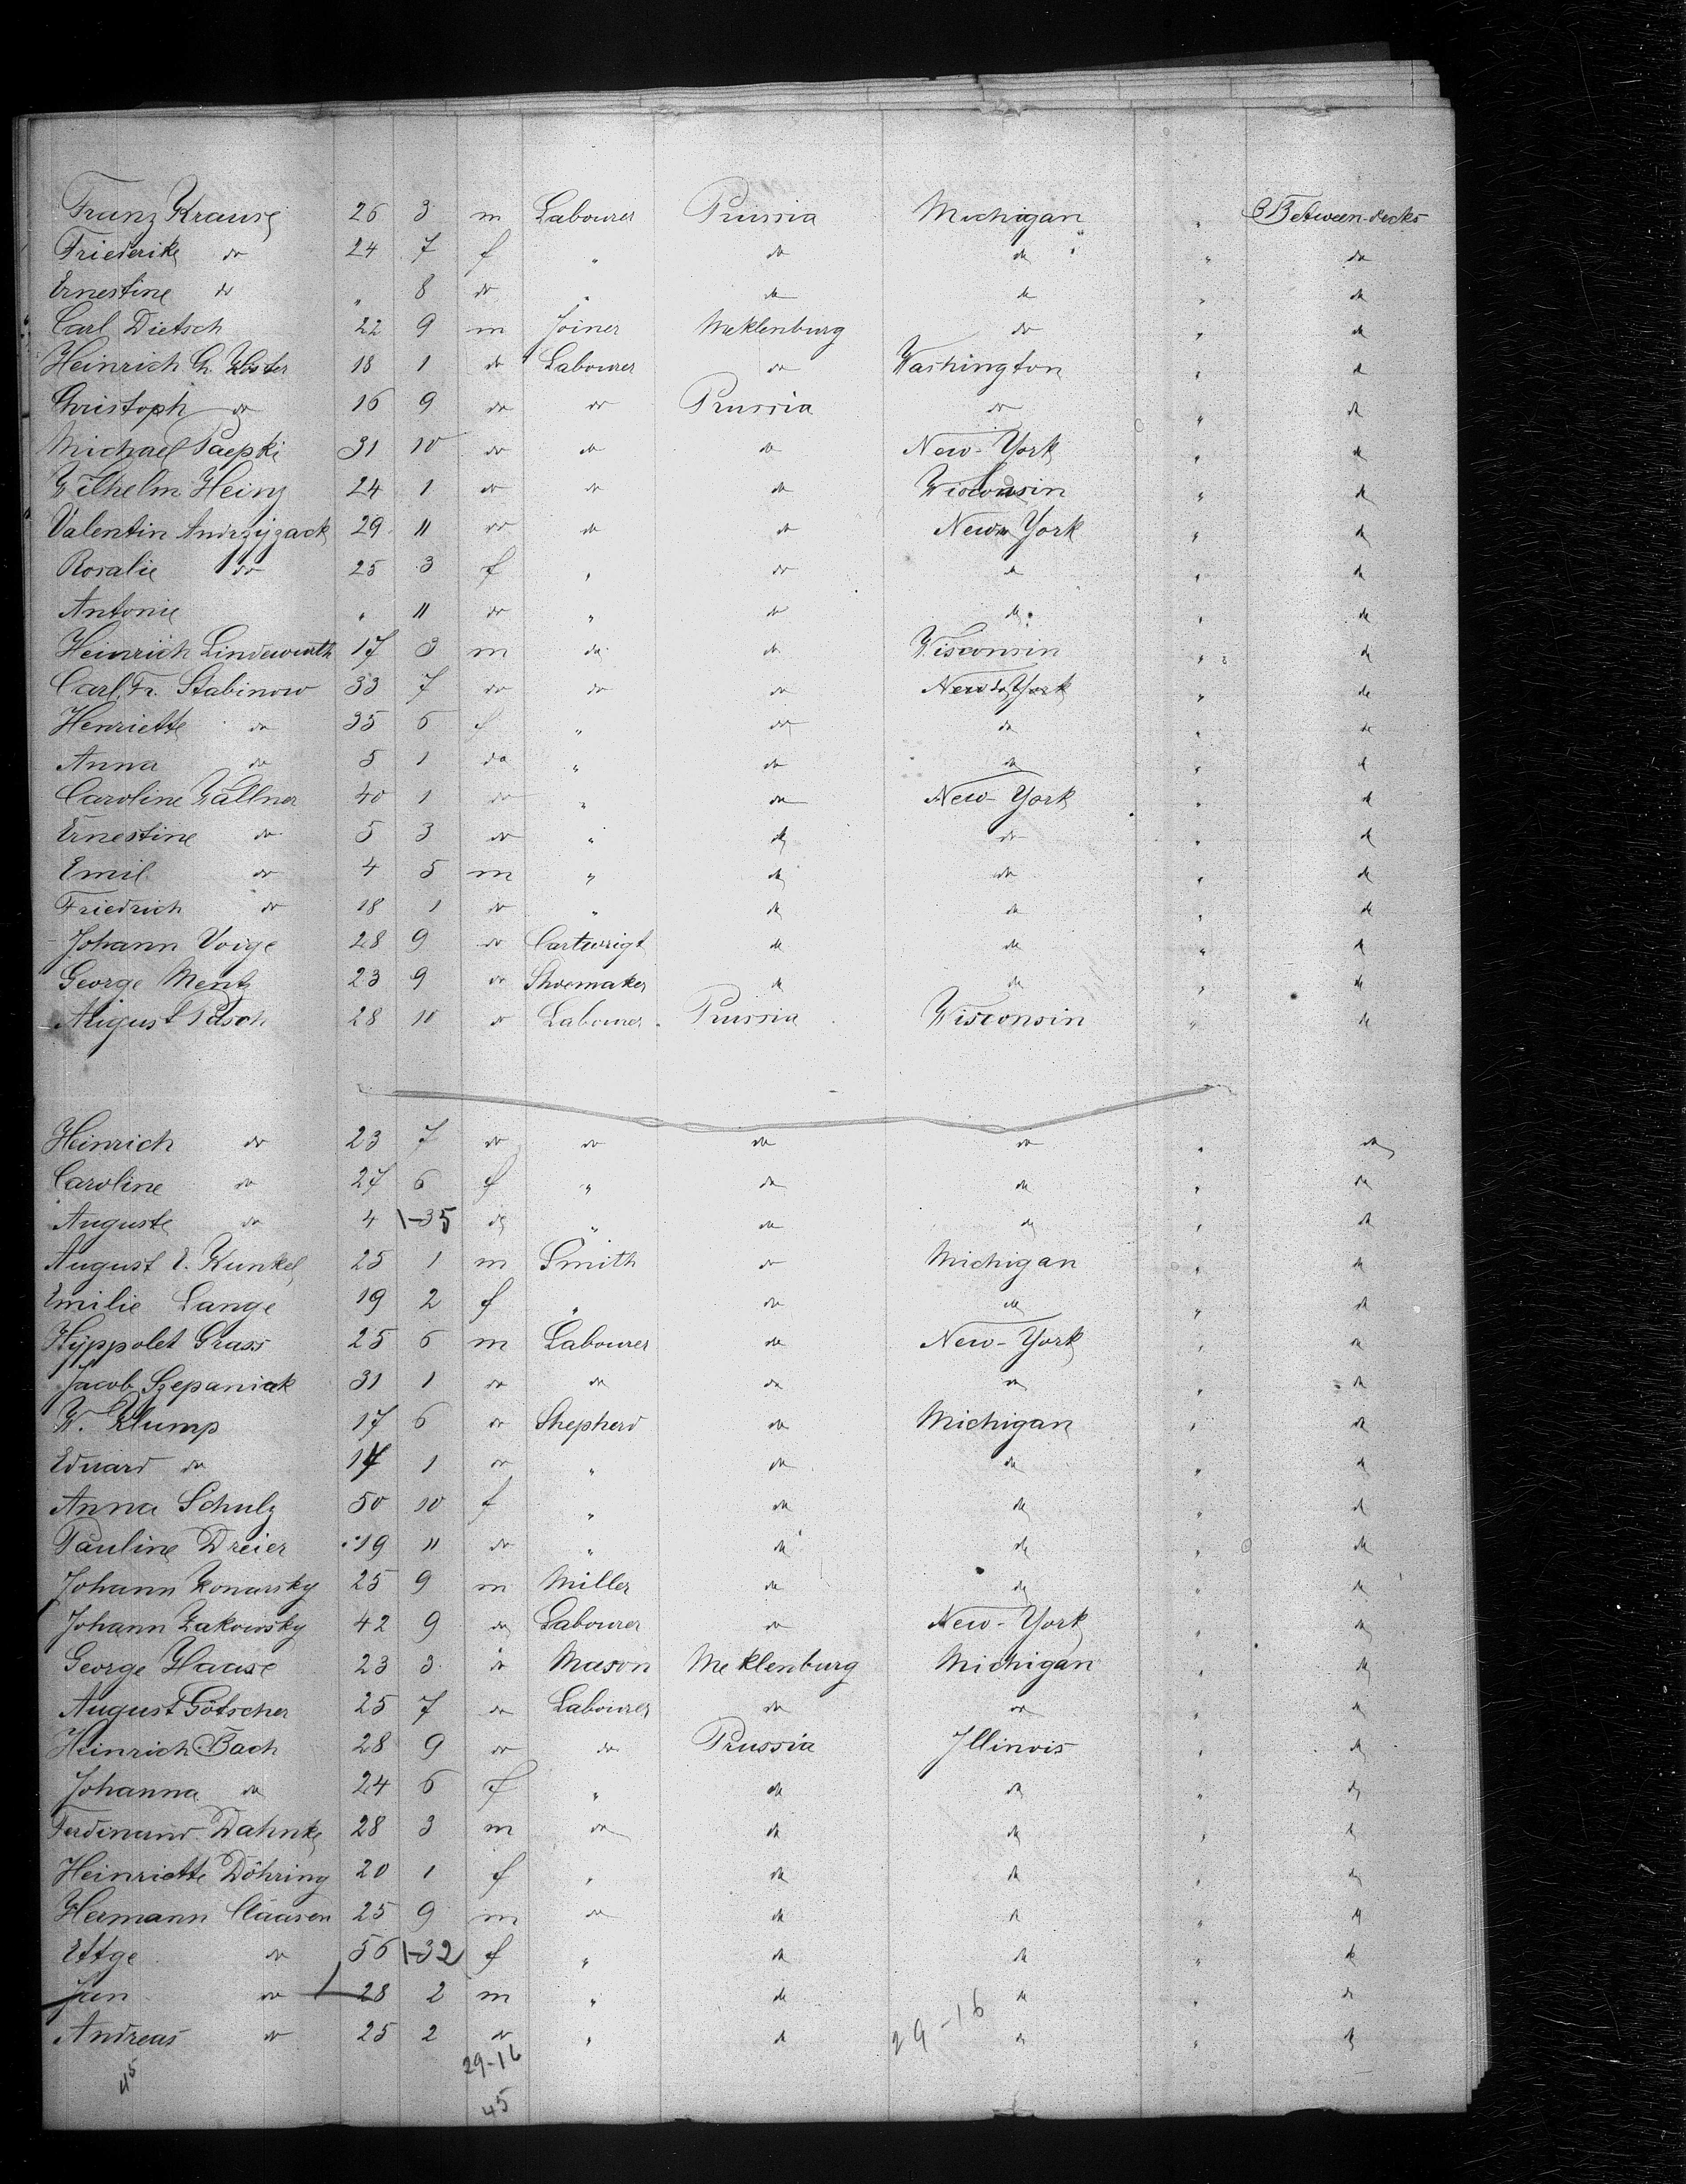 Franz Krause 26 3 m Labourer Prussia Michigan " Between-decks
Friederike do 24 7 f " do do " do
Ernestine do " 8 do " do do " do
Carl Dietsch 22 9 m Joiner Meklenburg do " do
Heinrich Ch. Köster 18 1 do Labourer do Washington " do
Christoph do 16 9 do do Prussia do " do
Michael Paepki 31 10 do do do New-York " do
Wilhelm Heinz 24 1 do do do Wisconsin " do
Valentin Andrzijzack 29 11 do do do New York " do
Rosalie do 25 3 f " do do " do
Antonie " 11 do " do do " do
Heinrich Lindewurth 17 3 m do do Wisconsin " do
Carl Fr. Stabinow 33 7 do do do New York " do
Henriette do 35 6 f " do do " do
Anna do 5 1 do " do do " do
Caroline Wallner 40 1 do " do New-York " do
Ernestine do 5 3 do " do do " do
Emil do 4 5 m " do do " do
Friedrich do 18 1 do " do do " do
Johann Voige 28 9 do Cartwrigt do do " do
George Mentz 23 9 do Shoemaker do do " do
August Pasch 28 10 do Labourer Prussia Wisconsin " do
Heinrich do 23 7 do do do do " do
Caroline do 27 6 f " do do " do
Auguste do 4 1-35 do " do do " do
August E. Kunkel 25 1 m Smith do Michigan " do
Emilie Lange 19 2 f " do do " do
Hyppolet Grass 25 6 m Labourer do New-York " do
Jacob Szepaniak 31 1 do do do do " do
W. Klump 17 6 do Shepherd do Michigan " do
Eduard do 14 1 do " do do " do
Anna Schulz 50 10 f " do do " do
Pauline Dreier 19 11 do " do do " do
Johann Konarsky 25 9 m Miller do do " do
Johann Zakowsky 42 9 do Labourer do New-York " do
George Haase 23 3 do Mason Meklenburg Michigan " do
August Götscher 25 7 do Labourer do do " do
Heinrich Bach 28 9 do do Prussia Illinois " do
Johanna do 24 6 f " do do " do
Ferdinand Dahnke 28 3 m do do do " do
Heinriette Döhring 20 1 f " do do " do
Hermann Claasen 25 9 m do do do " do
Ettge do 56 1-32 f " do do " do
Jan do 28 2 m " do do " do
Andreas do 25 2 do " do do " do
29-16
45 29-16
45